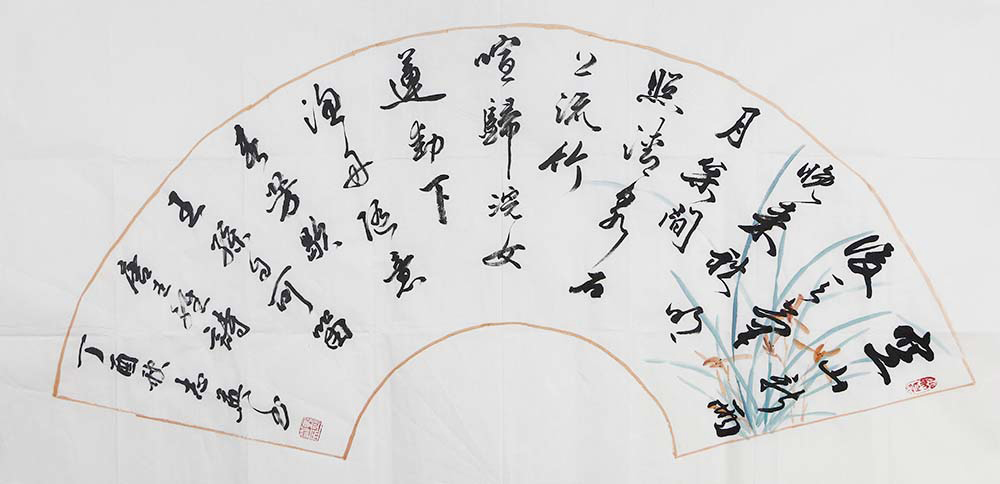 空山新雨
後天氣
晚来秋明
月松間
照清泉石
上流竹
喧歸浣女
蓮動下
漁舟随意
春芳歇
王孫自可留
唐王維詩
丁酉秋志书